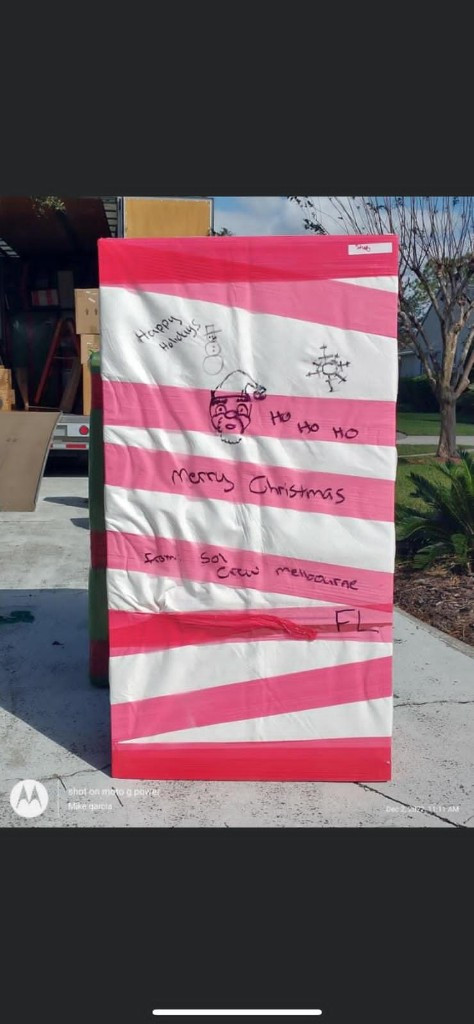 Happy
Holidays
HO HO HO
Merry Christmas
from Sol
Crew Melbourne
FL
shot on moto g power
Mike garcia